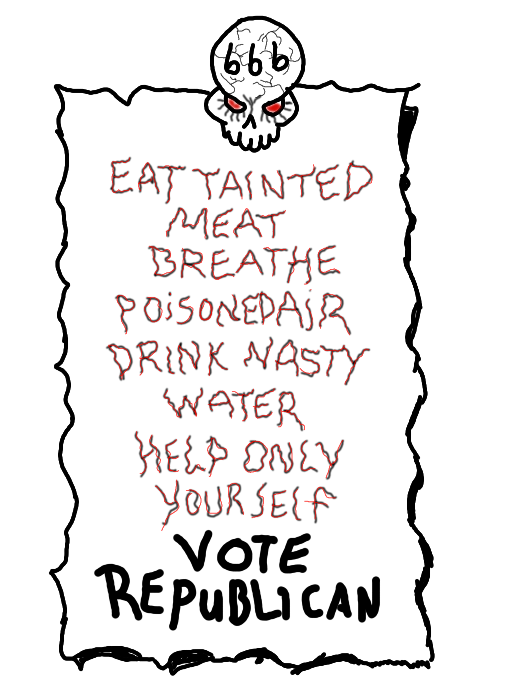 666
EAT TAINTED
MEAT
BREATHE
POiSONED AIR
DRINK NASTY
WATER
HELP ONLY
YOURSELF
VOTE
REPUBLICAN